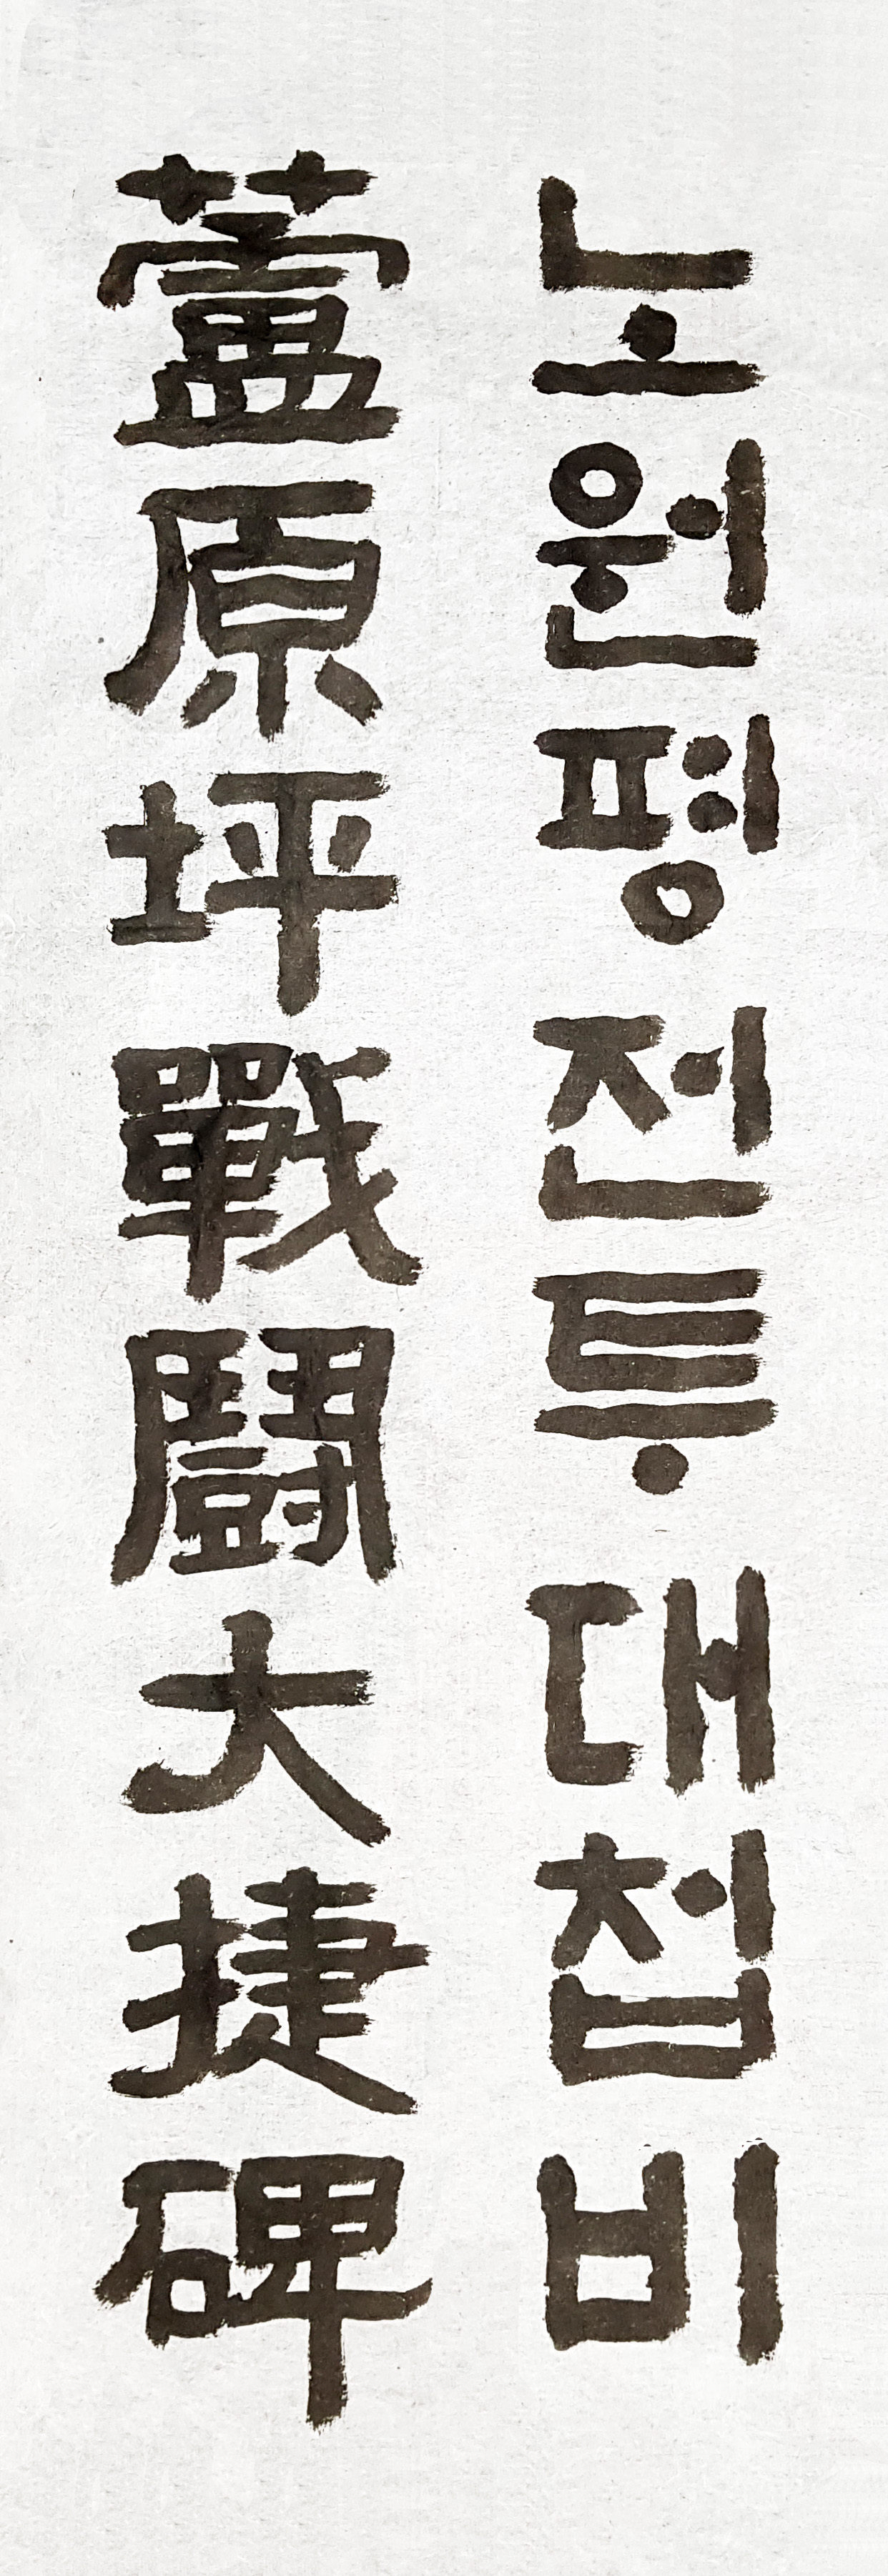 노원평전투대첩비
蘆原坪戰鬪大捷碑